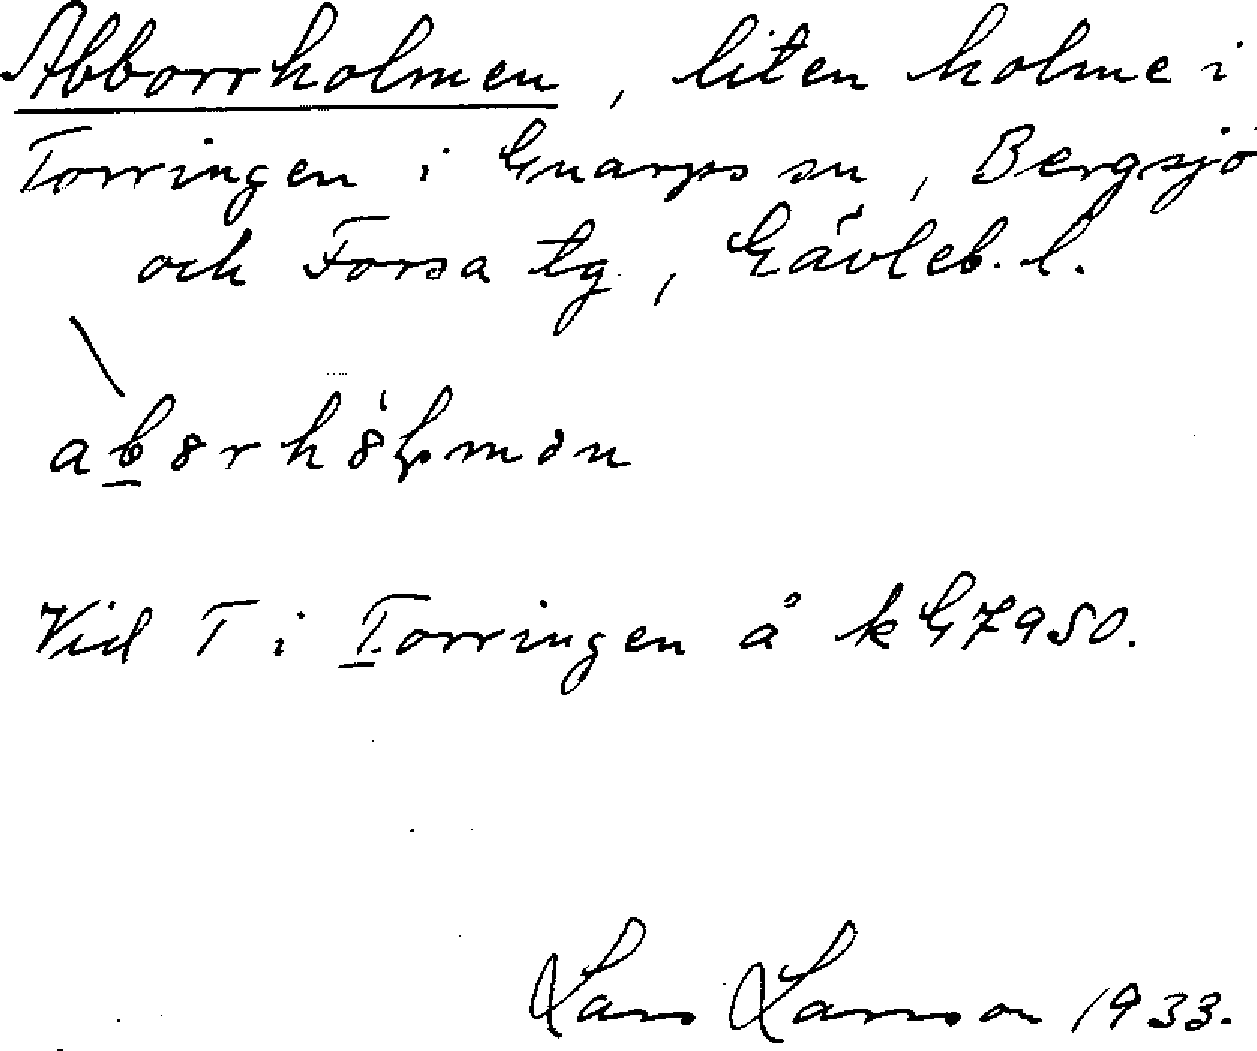 Abborrholmen, liten holme i
Torringen i Gnarps sn, Bergsjö
och Forsa tg., Gävleb. l.
Vid T i Torringen å k G7950.
Lars Larsson 1933.